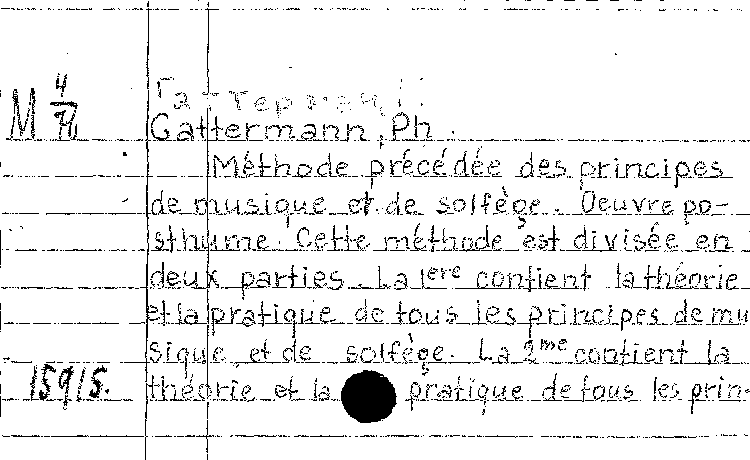 Гаттерман,
M 4/71
Gattermann, Ph.
Méthode précédée des principes
de musique et de solfège. Oeuvre po-
sthume. Cette méthode est divisée en
deux parties. La 1ere contient la théorie
et la pratique de tous les principes de mu
sique et de solfège. La 2me contient la
15915.
théorie et la pratique de tous les prin-